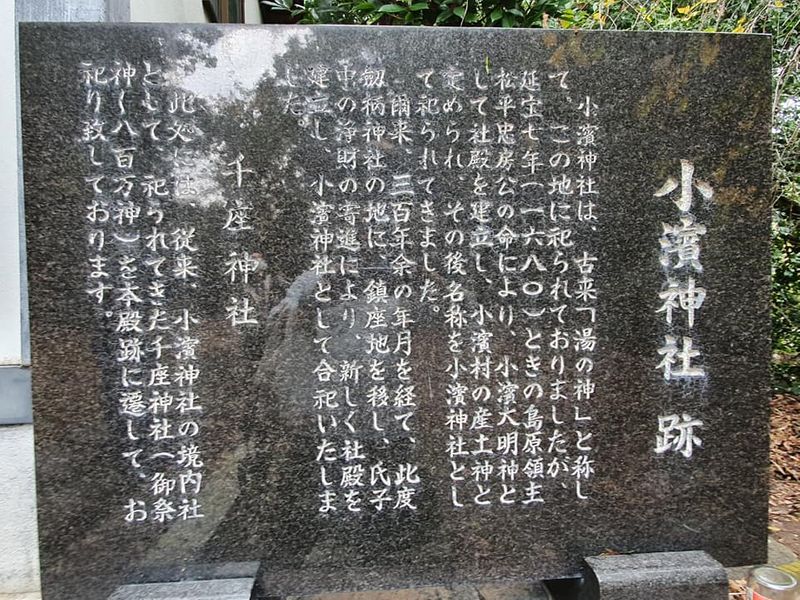 小濱神社跡
小濱神社は、古来「湯の神」と称し
て、この地に祀られておりましたが、
延宝七年(一六八〇)ときの島原領主
松平忠房公の命により、小濱大明神と
して社殿を建立し、小濱村の産土神と
定められ、その後名称を小濱神社とし
て祀られてきました。
爾来、三百年余の年月を経て、此度
剱柄神社の地に、鎮座地を移し、氏子
中の浄財の寄進により、新しく社殿を
建立し、小濱神社として合祀いたしま
した。
千座神社
此処には、従来、小濱神社の境内社
として、祀られてきた千座神社(御祭
神〜八百万神)を本殿跡に遷して、お
祀り致しております。